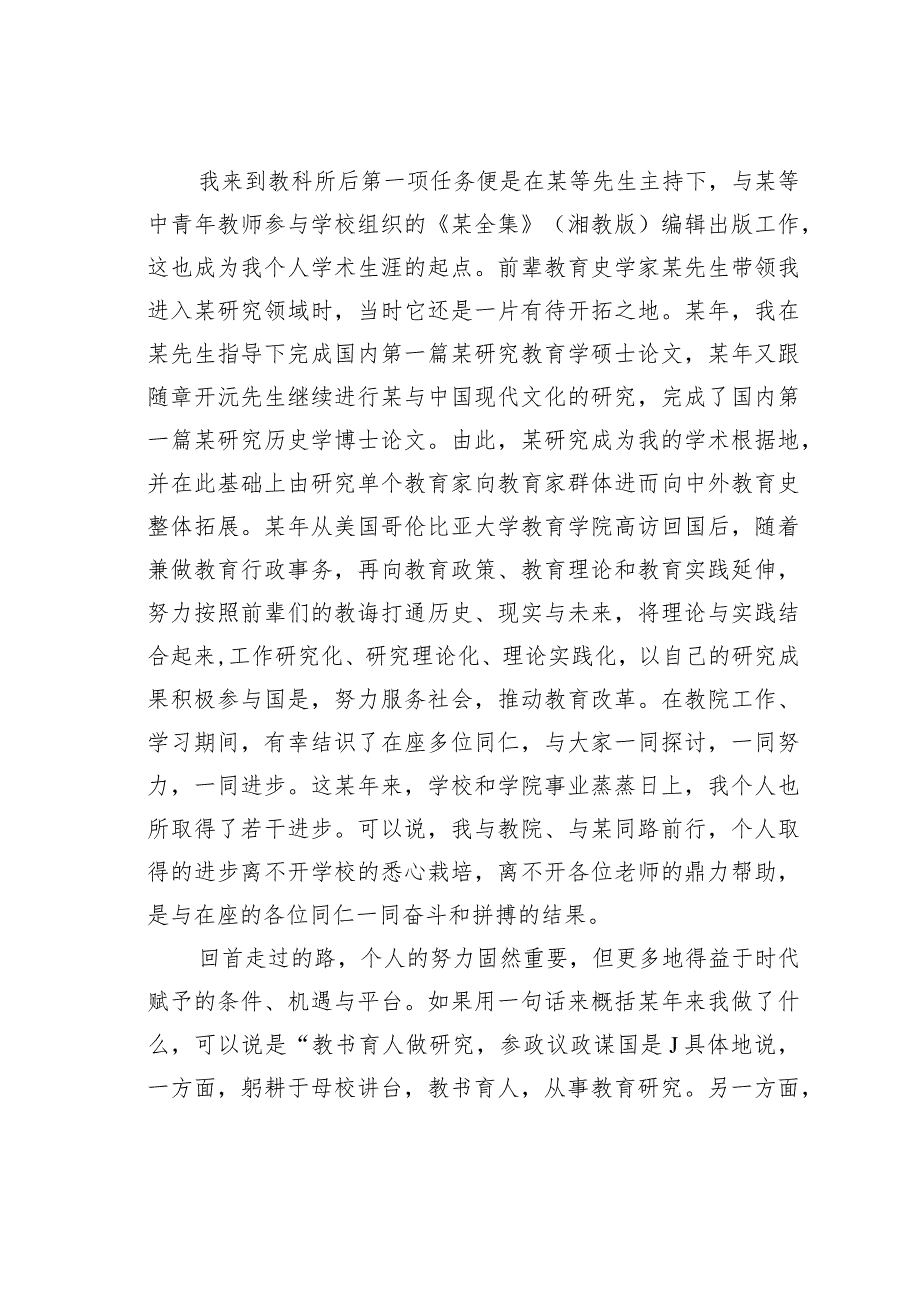 我来到教科所后第一项任务便是在某等先生主持下，与某等
中青年教师参与学校组织的《某全集》（湘教版）编辑出版工作，
这也成为我个人学术生涯的起点。前辈教育史学家某先生带领我
进入某研究领域时，当时它还是一片有待开拓之地。某年，我在
某先生指导下完成国内第一篇某研究教育学硕士论文，某年又跟
随章开沅先生继续进行某与中国现代文化的研究，完成了国内第
一篇某研究历史学博士论文。由此，某研究成为我的学术根据地，
并在此基础上由研究单个教育家向教育家群体进而向中外教育史
整体拓展。某年从美国哥伦比亚大学教育学院高访回国后，随着
兼做教育行政事务，再向教育政策、教育理论和教育实践延伸，
努力按照前辈们的教诲打通历史、现实与未来，将理论与实践结
合起来,工作研究化、研究理论化、理论实践化，以自己的研究成
果积极参与国是，努力服务社会，推动教育改革。在教院工作、
学习期间，有幸结识了在座多位同仁，与大家一同探讨，一同努
力，一同进步。这某年来，学校和学院事业蒸蒸日上，我个人也
所取得了若干进步。可以说，我与教院、与某同路前行，个人取
得的进步离不开学校的悉心栽培，离不开各位老师的鼎力帮助，
是与在座的各位同仁一同奋斗和拼搏的结果。
回首走过的路，个人的努力固然重要，但更多地得益于时代
赋予的条件、机遇与平台。如果用一句话来概括某年来我做了什
么，可以说是“教书育人做研究，参政议政谋国是J具体地说，
一方面，躬耕于母校讲台，教书育人，从事教育研究。另一方面，